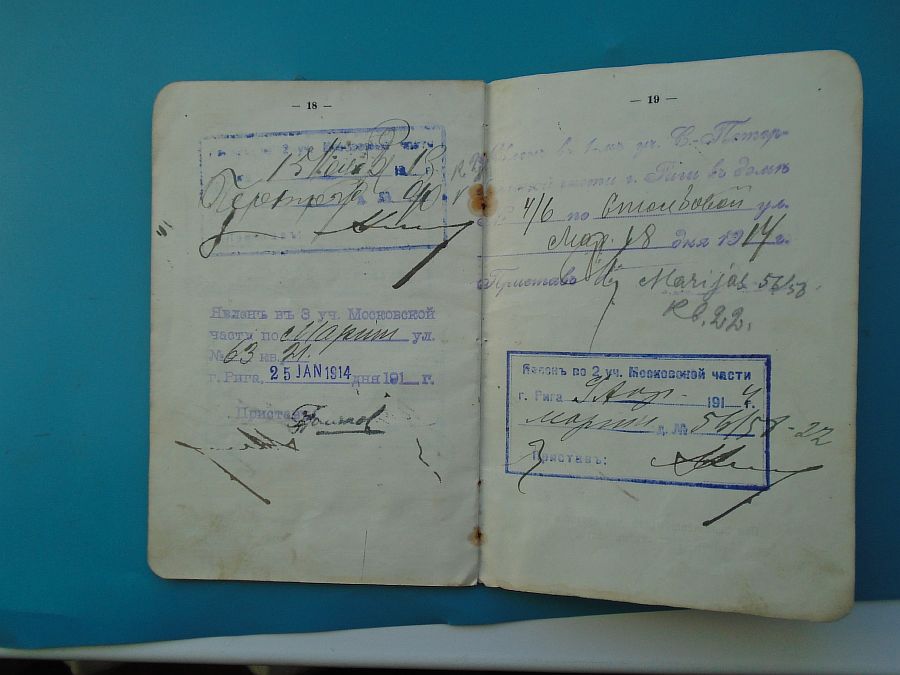 — 18 —
2 уч. Московской части
13 Ноября 13
Явленъ въ 3 уч. Московской
части по Марiин ул.
№ 63 кв. 21.
г. Рига, 25 JAN 1914 дня 191 г.
Приставъ
— 19 —
въ 1-мъ уч. С.-Петер-
части г. Риги въ домѣ
№ 4/6 по Столбовой ул.
Мар. 18 дня 1914 г.
Приставъ Marijas 56/58.
Кв. 22.
Явленъ во 2 уч. Московской части
г. Рига 9 Апр. 1914 г.
Марiин д. № 56/58-22
Приставъ: